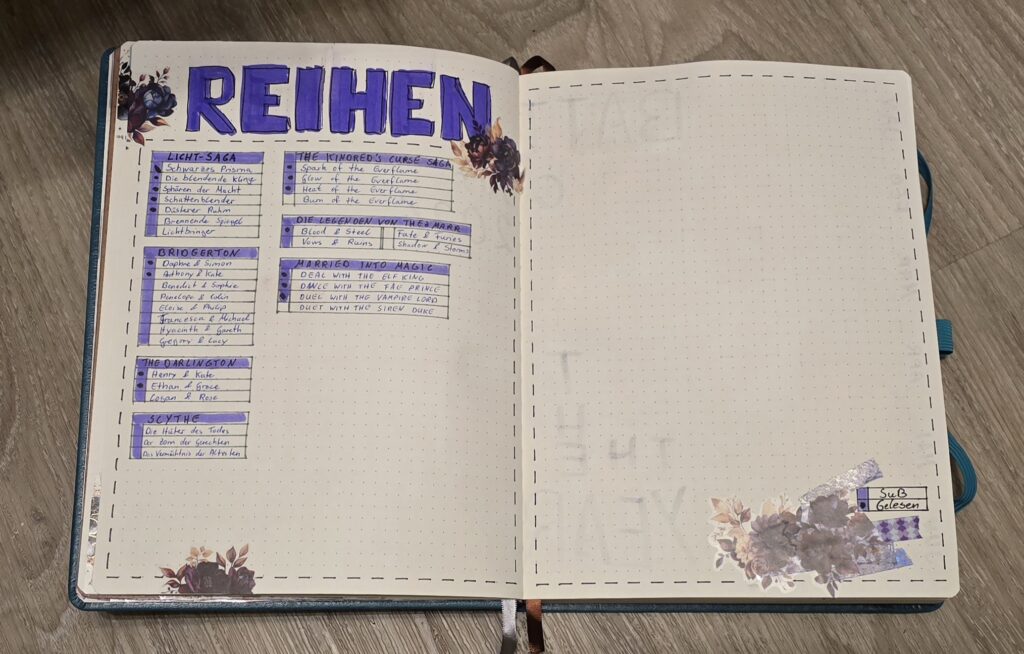 REIHEN
LICHT-SAGA
Schwarzes Prisma
Die blendende Klinge
Sphären der Macht
Schattenblender
Düsterer Ruhm
Brennende Spiegel
Lichtbringer
BRIDGERTON
Daphne & Simon
Anthony & Kate
Benedict & Sophie
Penelope & Colin
Eloise & Philip
Francesca & Michael
Hyacinth & Gareth
Gregory & Lucy
THE DARLINGTON
Henry & Kate
Ethan & Grace
Logan & Rose
SCYTHE
Die Hüter des Todes
Der Zorn der Gerechten
Das Vermächtnis der Ältesten
THE KINDRED'S CURSE SAGA
Spark of the Everflame
Glow of the Everflame
Heat of the Everflame
Burn of the Everflame
DIE LEGENDEN VON THEAMARR
Blood & Steel
Fate & Furies
Vows & Ruins
Shadow & Storms
MARRIED INTO MAGIC
DEAL WITH THE ELF KING
DANCE WITH THE FAE PRINCE
DUEL WITH THE VAMPIRE LORD
DUET WITH THE SIREN DUKE
SuB
Gelesen